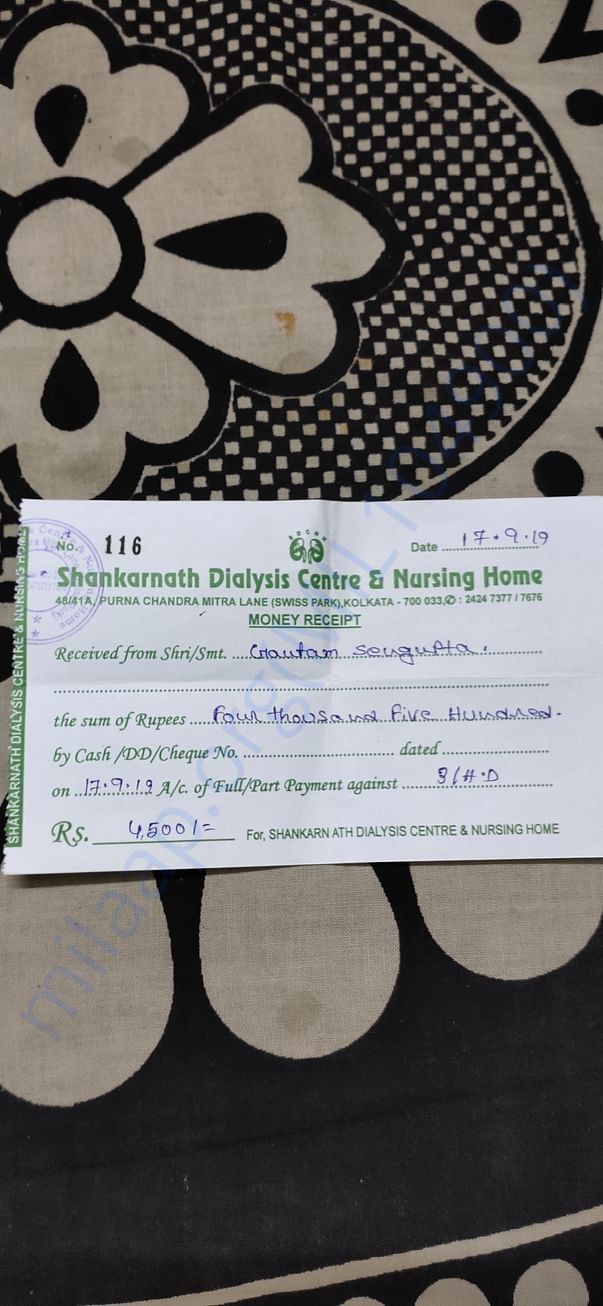 No. 116
Date 17.9.19
Shankarnath Dialysis Centre & Nursing Home
48/41A, PURNA CHANDRA MITRA LANE (SWISS PARK),KOLKATA - 700 033,✆ : 2424 7377 / 7676
MONEY RECEIPT
Received from Shri/Smt. Gautam Sengupta.
the sum of Rupees Four thousand Five Hundred.
by Cash /DD/Cheque No. dated
on 17.9.19 A/c. of Full/Part Payment against 3/H.D
Rs. 4,500/=
For, SHANKARN ATH DIALYSIS CENTRE & NURSING HOME
SHANKARNATH DIALYSIS CENTRE & NURSING HOME
milaap.org